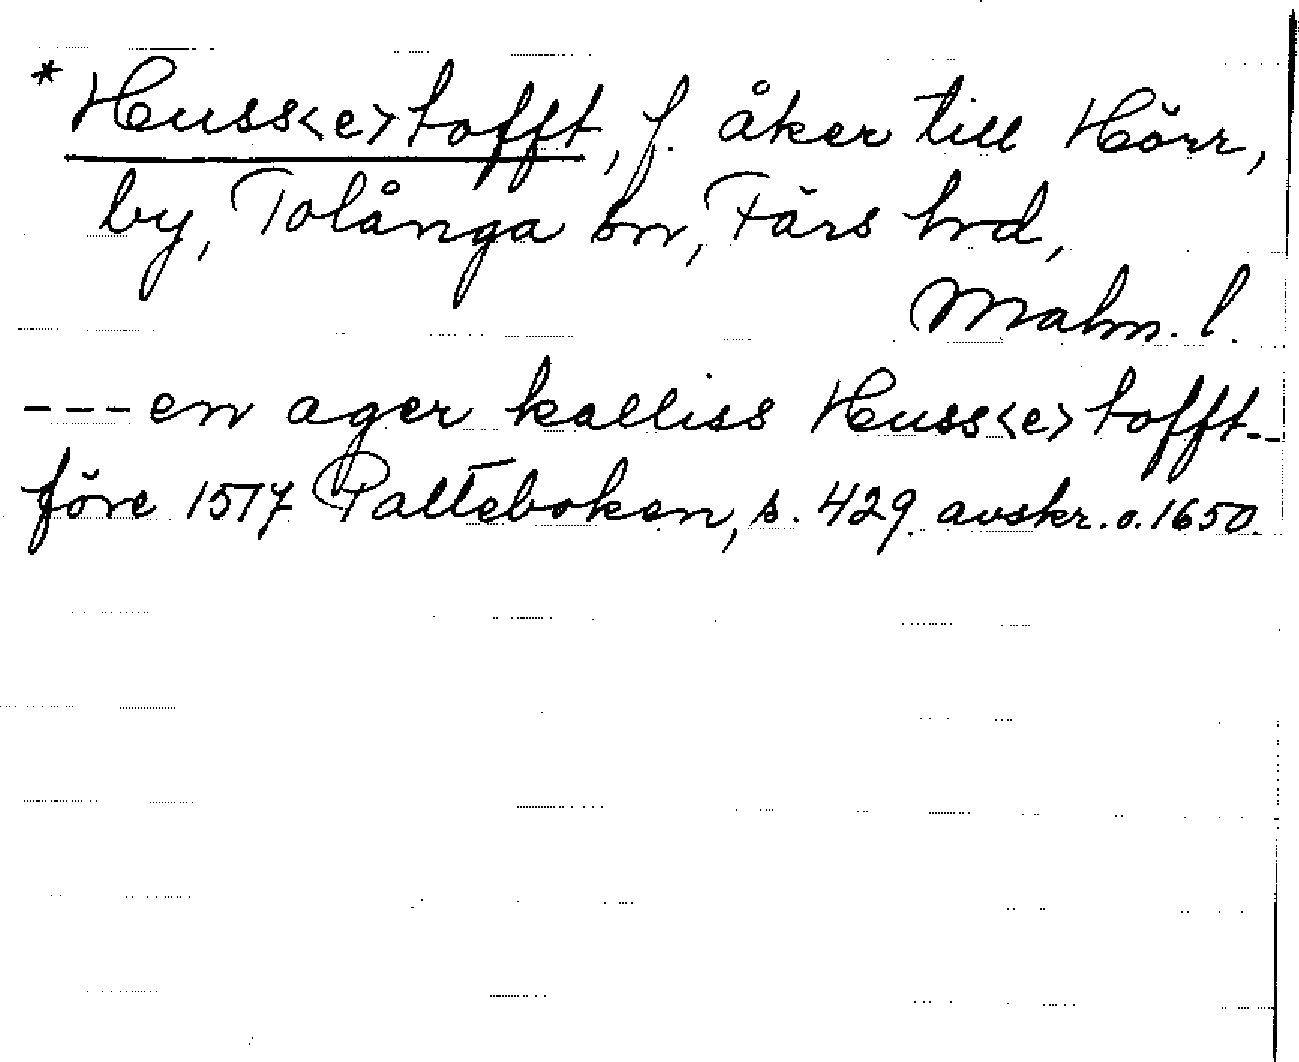 * Huss<e>tofft, f. åker till Hörr,
by, Tolånga sn, Färs hrd,
Malm. l.
---en ager kalliss Huss<e>tofft--
före 1517 Palteboken, s. 429. avskr. o. 1650.